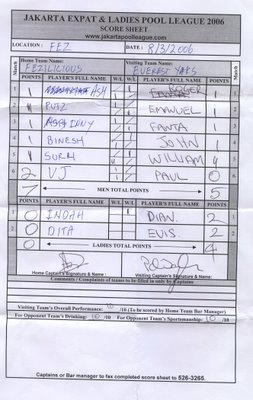 JAKARTA EXPAT & LADIES POOL LEAGUE 2006
SCORE SHEET
www.jakartapoolleague.com
LOCATION : FEZ DATE : 8/3/2006
Home Team Name: Visiting Team Name:
FEZILICIOUS EVEREST YAKS
Match POINTS PLAYER'S FULL NAME W/L W/L PLAYER'S FULL NAME POINTS Match
1 1 ASH ROGER 1 1
2 RUIZ EMANUEL 2
3 1 DINY FANTA 1 3
4 1 BINESH JOHN 1 4
5 1 WILLIAM 5
6 2 VJ PAUL 0 6
7 MEN TOTAL POINTS 5
POINTS PLAYER'S FULL NAME W/L W/L PLAYER'S FULL NAME POINTS
1 0 INDAH DIAN. 2 1
2 0 DITA EVIS. 2 2
0 LADIES TOTAL POINTS 4
Home Captain's Signature & Name : Visiting Captain's Signature & Name:
Comments / Complaints of teams to be filled in only by Captains
Visiting Team's Overall Performance: 10 /10 (To be scored by Home Team Bar Manager)
For Opponent Team's Drinking: 10 /10 For Opponent Team's Sportsmanship: 10 /10
Captains or Bar manager to fax completed score sheet to 526-3265.